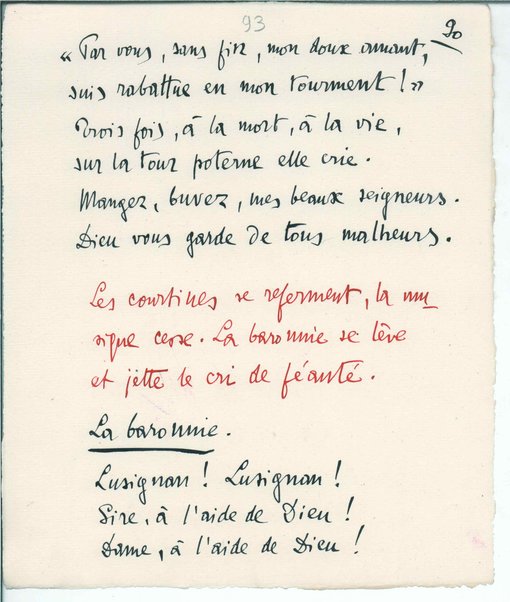 93
90
« Par vous, sans fin, mon doux amant,
suis rabattue en mon tourment ! »
Trois fois, à la mort, à la vie,
sur la tour poterne elle crie.
Mangez, buvez, mes beaux seigneurs.
Dieu vous garde de tous malheurs.
Les courtines se referment, la mu
sique cesse. La baronnie se lève
et jette le cri de féauté.
La baronnie.
Lusignan ! Lusignan !
Sire, à l'aide de Dieu !
Dame, à l'aide de Dieu !